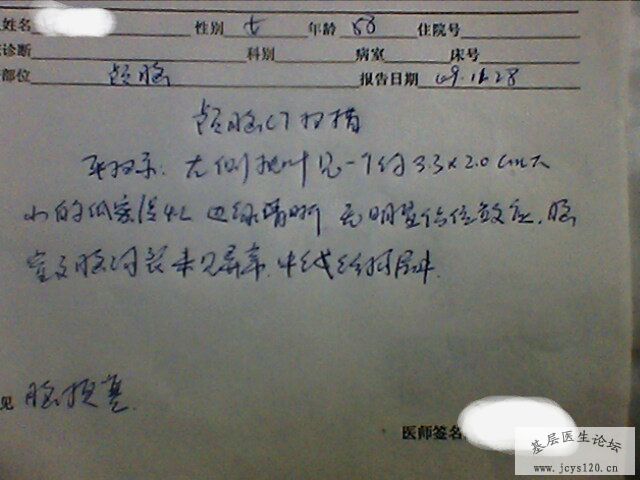 姓名 性别 女 年龄 53 住院号
诊断 科别 病室 床号
部位 颅脑 报告日期 09.11.28
颅脑CT扫描
平扫示:左侧枕叶见一个约3.3×2.0cm大
小的低密度灶 边缘清晰 无明显占位效应.脑
室及脑沟裂未见异常.中线结构居中.
见 脑梗塞.
医师签名
基层医生论坛
www.jcys120.cn